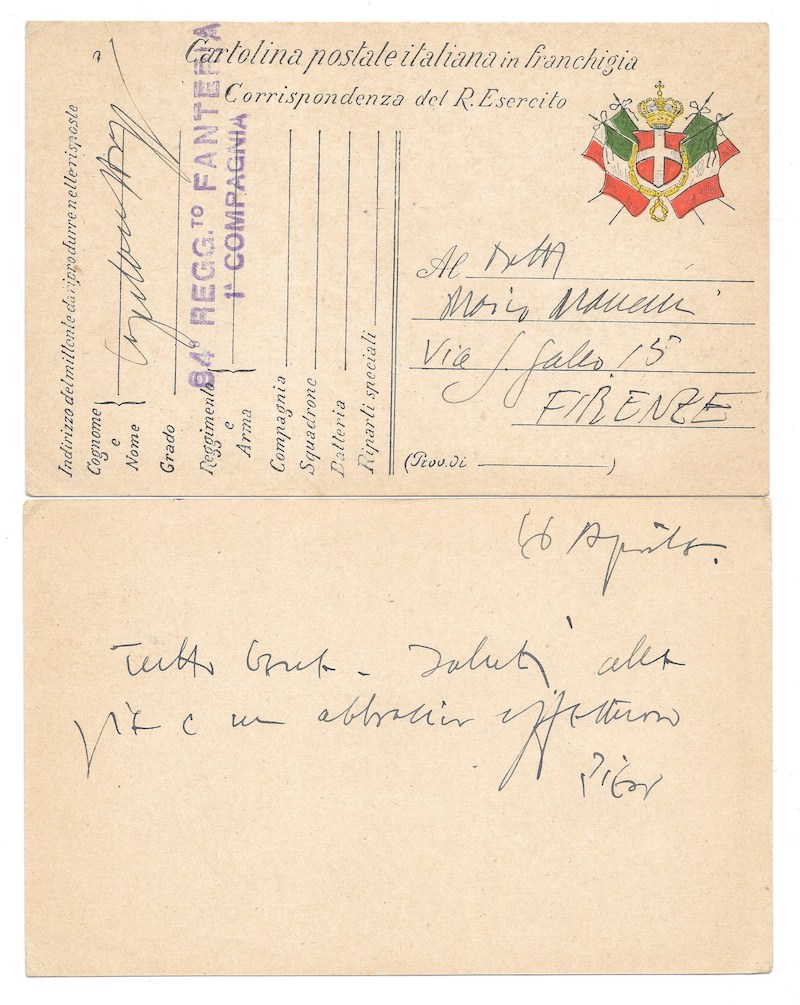 Cartolina postale italiana in franchigia
Corrispondenza del R. Esercito
Indirizzo del mittente da riprodurre nelle risposte
Cognome
e
Nome
Grado
Reggimento
e
Arma
84° REGG.TO FANTERIA
1ª COMPAGNIA
Compagnia
Squadrone
Batteria
Riparti speciali
Al Dott
Mario
Via S. Gallo 15
FIRENZE
(Prov. di )
Aprile.
Tutto bene - Saluti alla
e un abbraccio affettuoso